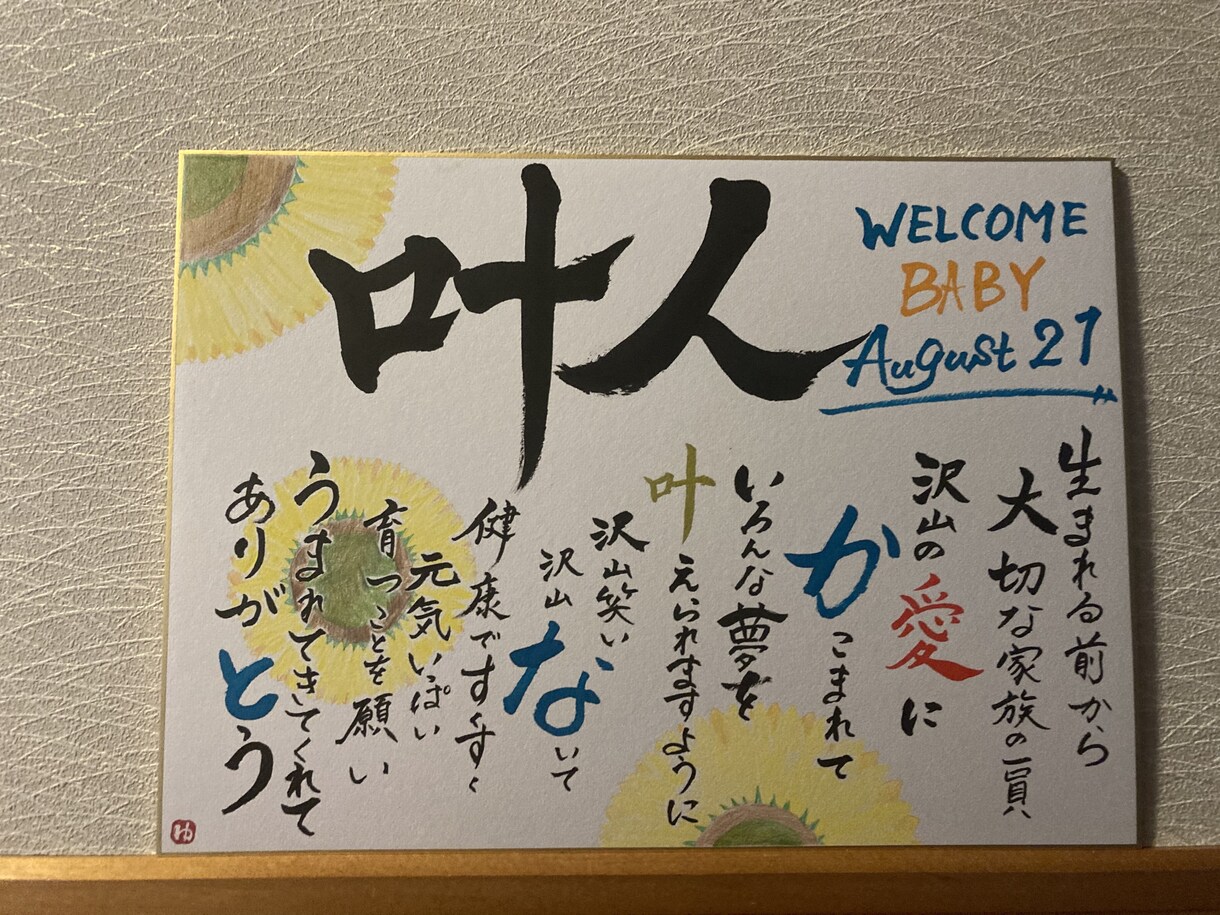 叶人
WELCOME
BABY
August 21
生まれる前から
大切な家族の一員
沢山の愛に
かこまれて
いろんな夢を
叶えられますように
沢山笑い
沢山ないて
健康ですくすく
元気いっぱい
育つことを願い
うまれてきてくれて
ありがとう
ゆ